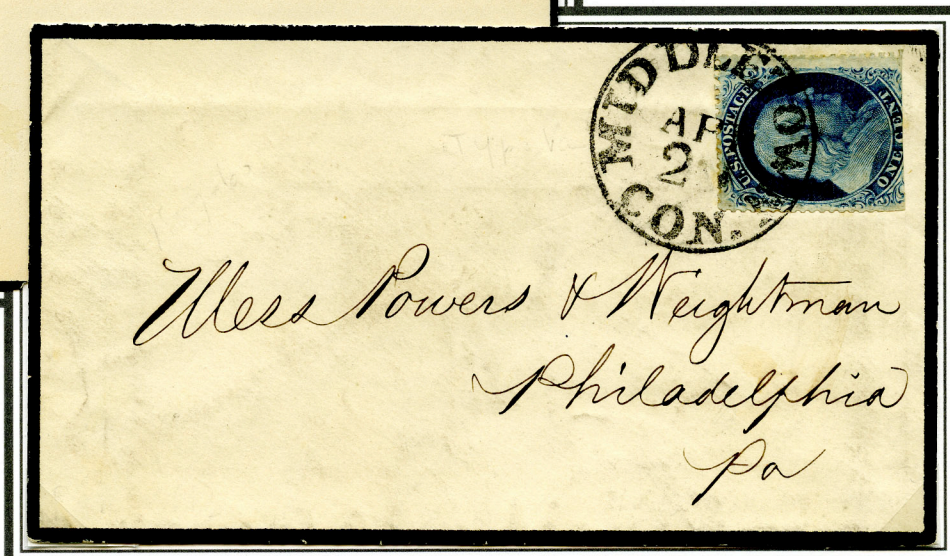 MIDDLETOWN
AP
2
CON.
U.S. POSTAGE
ONE CENT
Mess Powers & Weightman
Philadelphia
Pa